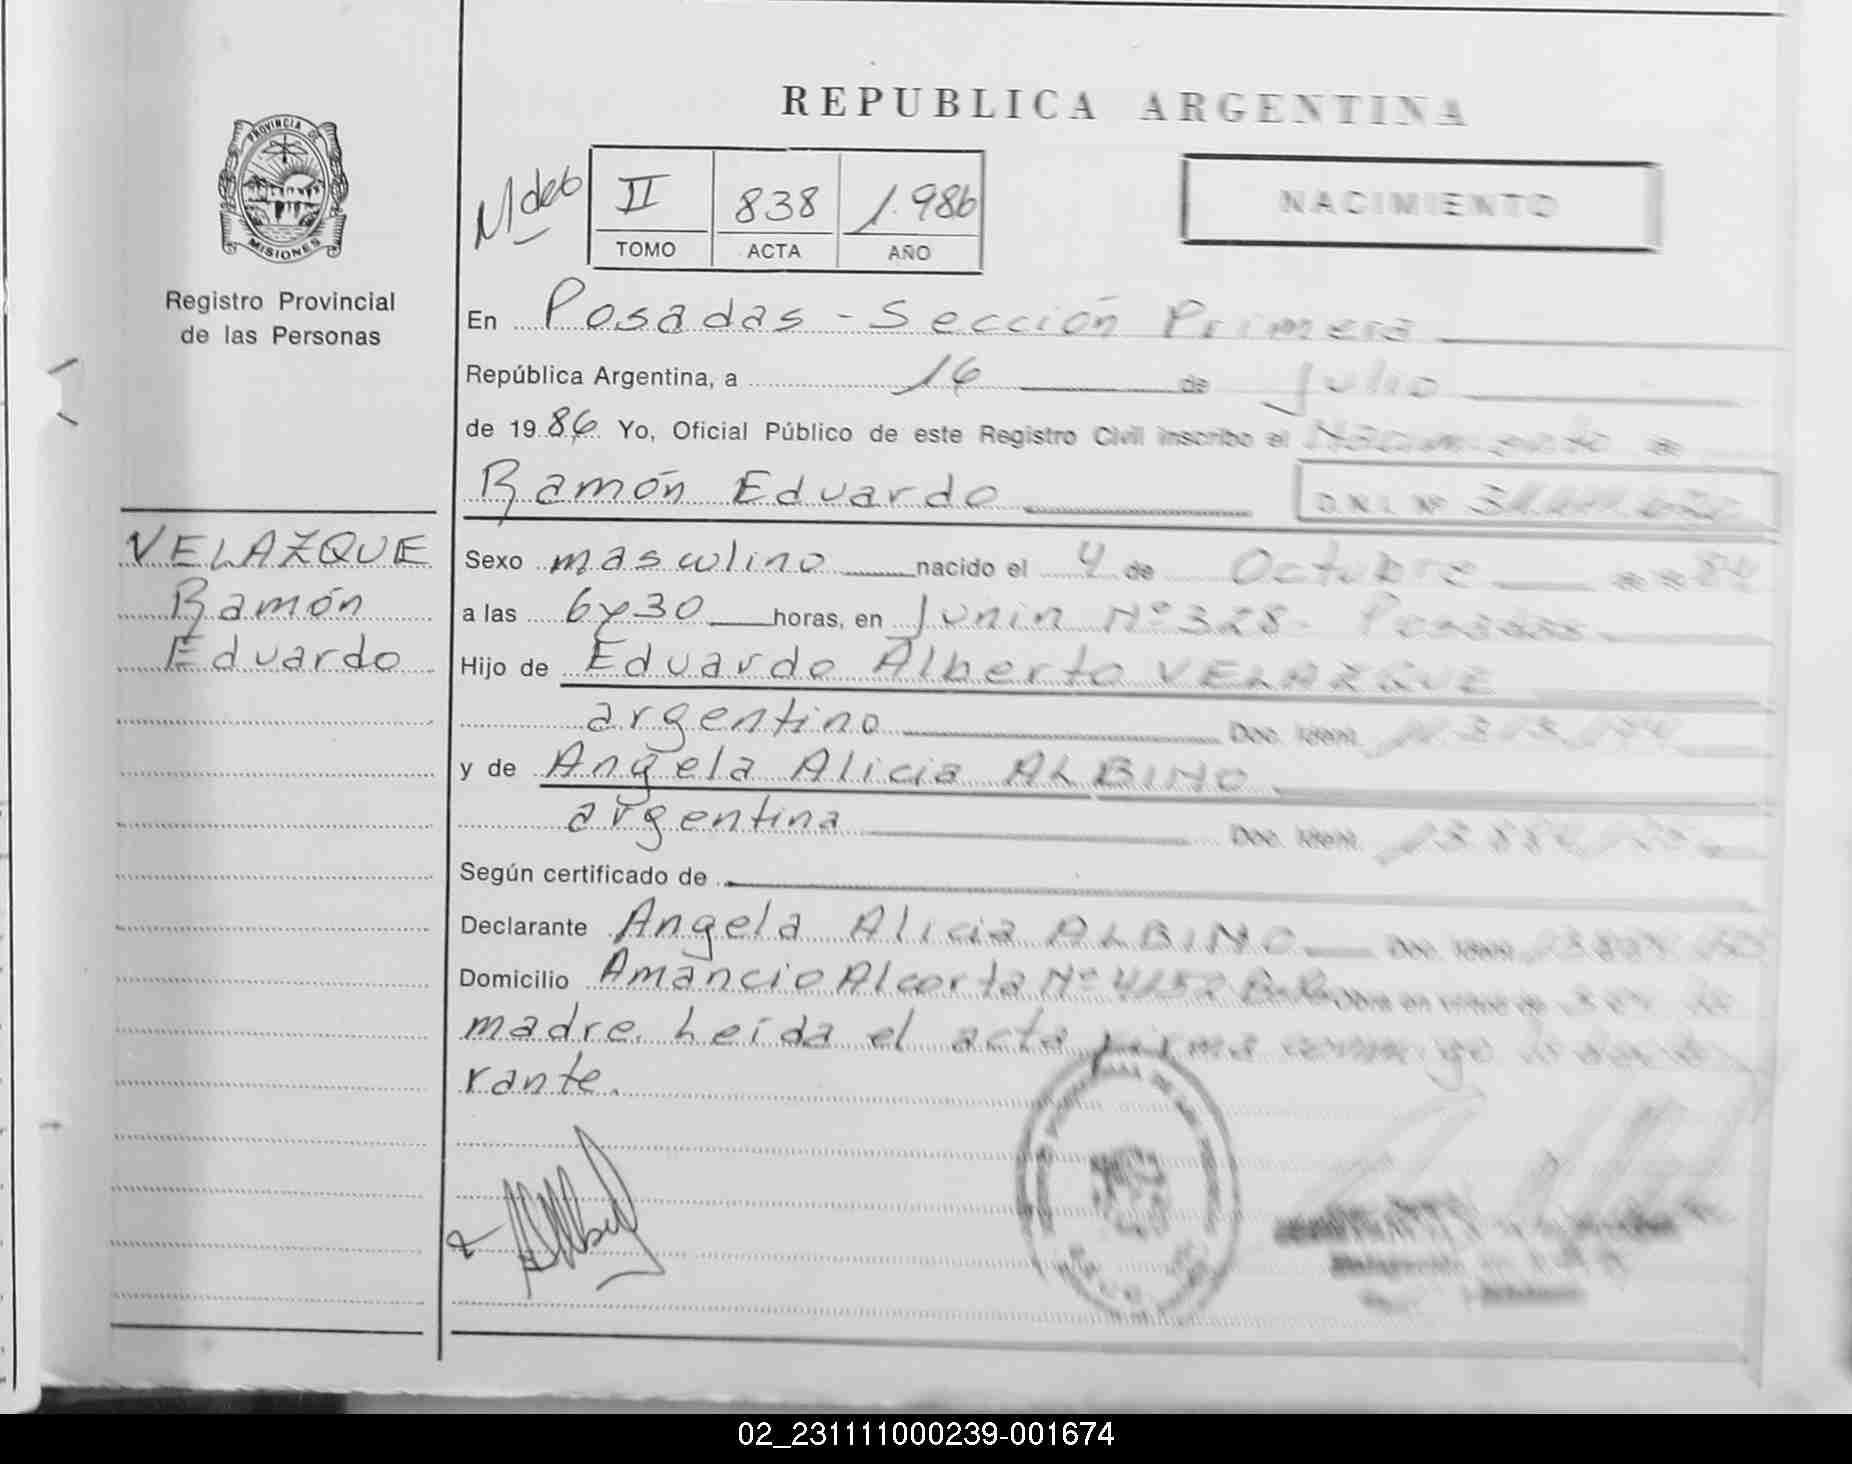 REPUBLICA ARGENTINA
PROVINCIA DE
MISIONES
Registro Provincial
de las Personas
II 838 1.986
TOMO ACTA AÑO
NACIMIENTO
En Posadas - Sección Primera
República Argentina, a 16 de Julio
de 1986 Yo, Oficial Público de este Registro Civil inscribo el Nacimiento de
Ramón Eduardo
D.N.I. Nº
VELAZQUE
Ramón
Eduardo
Sexo masculino nacido el 4 de Octubre de 1984
a las 6y30 horas, en Junin Nº 328. Posadas
Hijo de Eduardo Alberto VELAZQUE
argentino Doc. Ident.
y de Angela Alicia ALBINO
argentina Doc. Ident.
Según certificado de
Declarante Angela Alicia ALBINO Doc. Ident.
Domicilio Amancio Alcorta Nº
madre. Leída el acta firma conmigo la decla
rante.
02_231111000239-001674